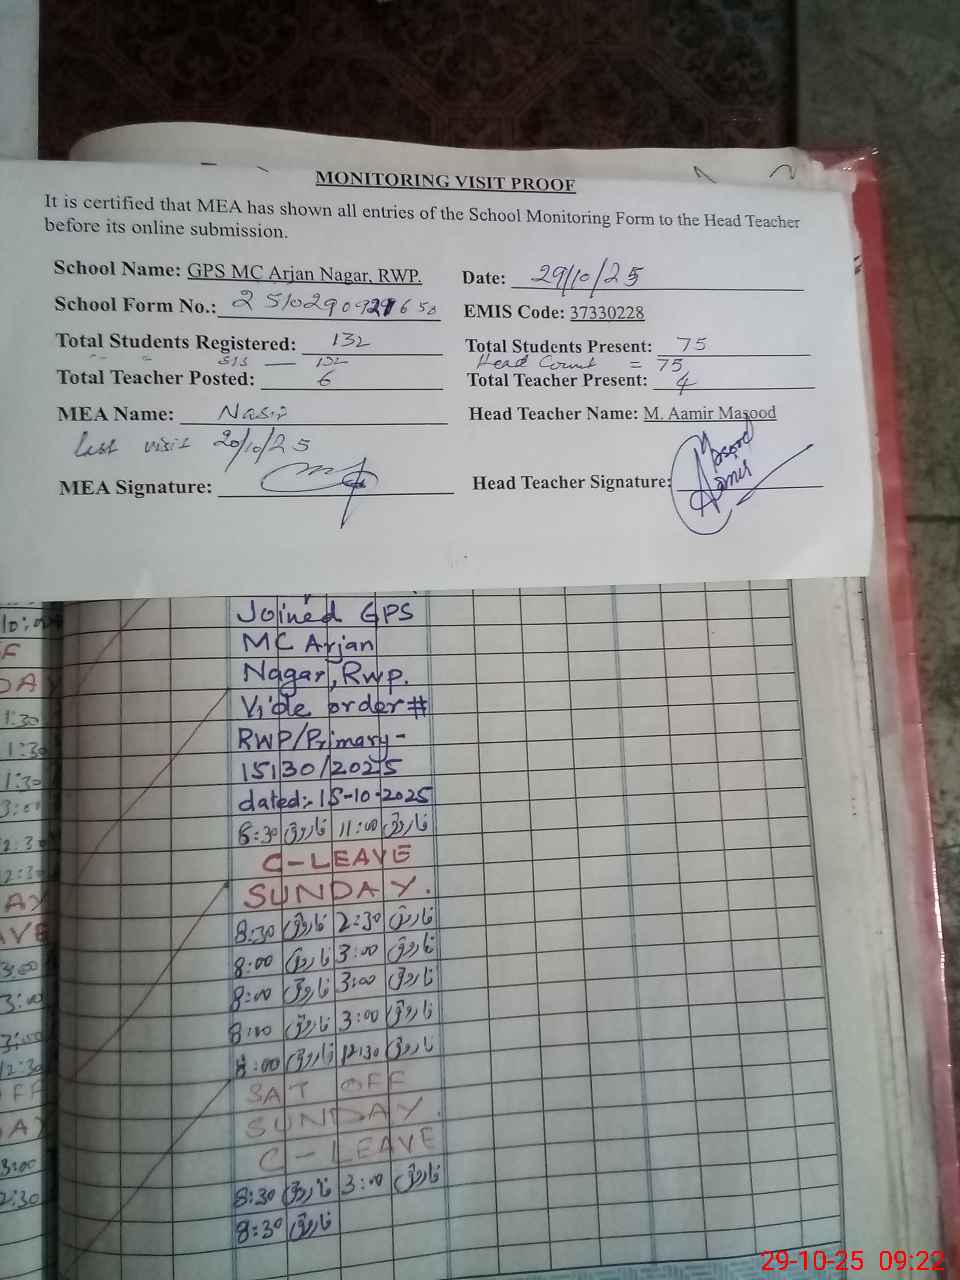 MONITORING VISIT PROOF
It is certified that MEA has shown all entries of the School Monitoring Form to the Head Teacher
before its online submission.
School Name: GPS MC Arjan Nagar, RWP. Date: 29/10/25
School Form No.: EMIS Code: 37330228
Total Students Registered: 132 Total Students Present: 75
SIS — 132 Head Count = 75
Total Teacher Posted: 6 Total Teacher Present: 4
MEA Name: Nasir Head Teacher Name: M. Aamir Masood
last visit 20/10/25
MEA Signature: Head Teacher Signature: Masood Aamir
Joined GPS
MC Arjan
Nagar, Rwp.
Vide order #
RWP/Primary-
15130/2025
dated:- 15-10-2025
8:30 فاروق 11:00 فاروق
C-LEAVE
SUNDAY.
8:30 فاروق 2:30 فاروق
8:00 فاروق 3:00 فاروق
8:00 فاروق 3:00 فاروق
8:00 فاروق 3:00 فاروق
8:00 فاروق 12:30 فاروق
SAT OFF
SUNDAY.
C-LEAVE
8:30 فاروق 3:00 فاروق
8:30 فاروق
29-10-25 09:22